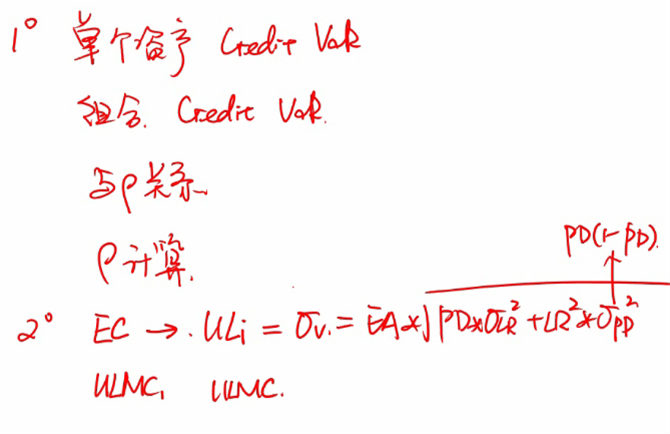 1° 单个资产 Credit VaR
组合. Credit VaR.
与ρ关系
ρ计算.
PD(1-PD).
2° EC → . ULi = σv. = EA*√PD*σLR²+LR²*σPD²
ULMC, ULMC.